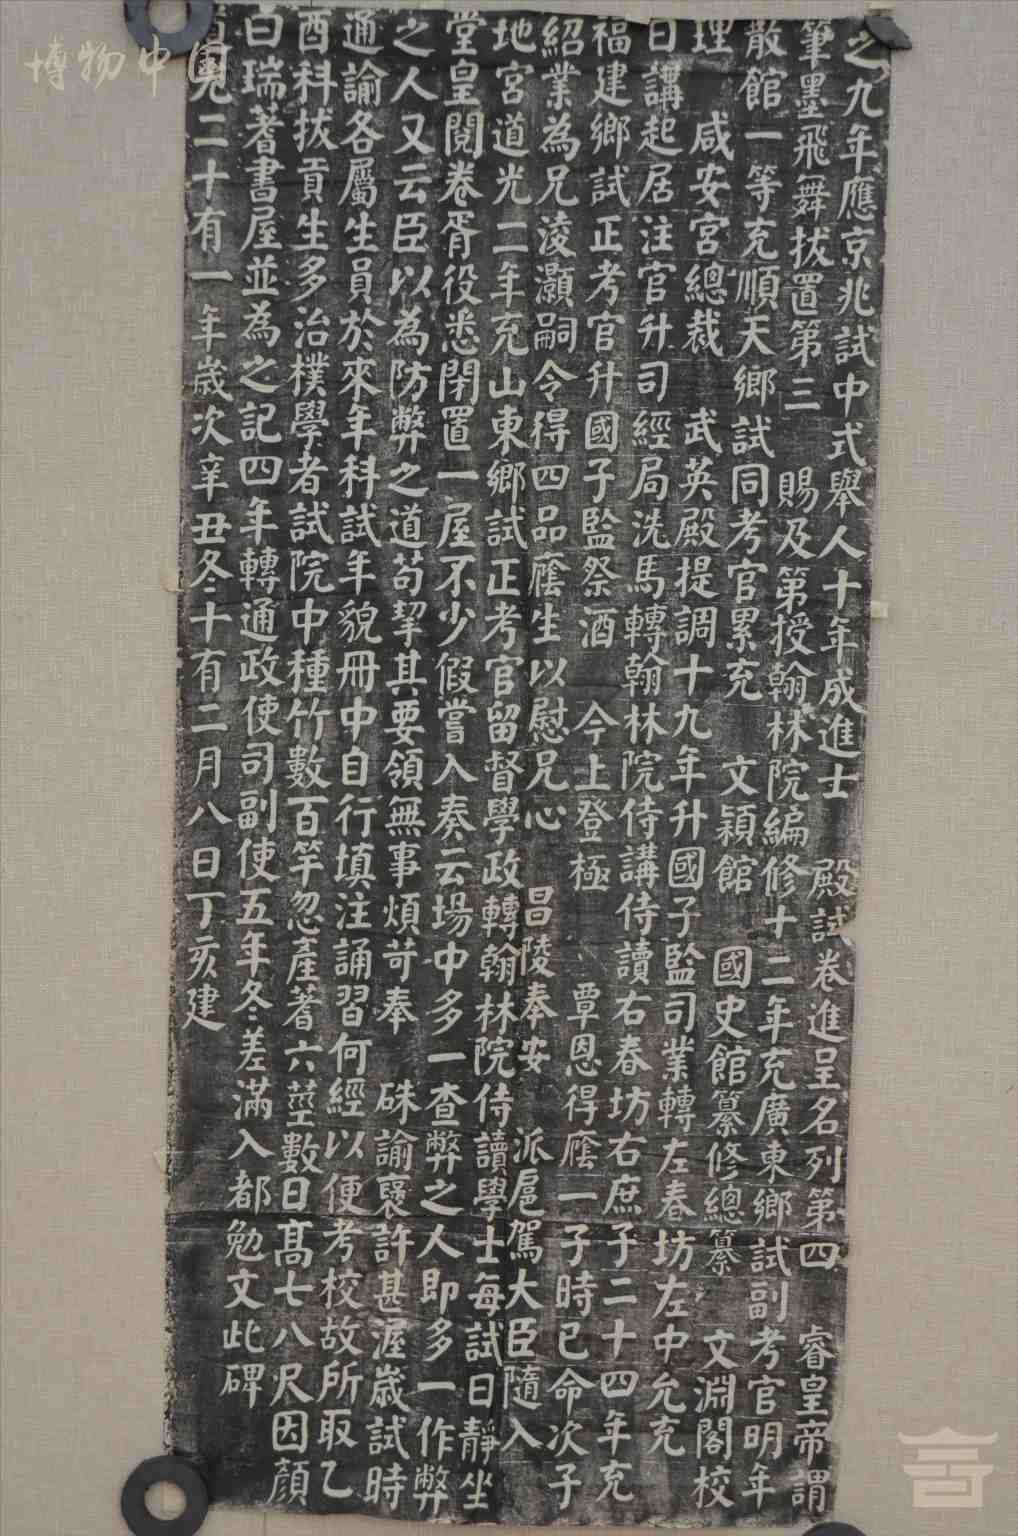 之九年應京兆試中式舉人十年成進士　殿試卷進呈名列第四　睿皇帝謂
筆墨飛舞拔置第三　賜及第授翰林院編修十二年充廣東鄉試副考官明年
散館一等充順天鄉試同考官累充　文穎館　國史館纂修總纂　文淵閣校
理　咸安宮總裁　武英殿提調十九年升國子監司業轉左春坊左中允充
日講起居注官升司經局洗馬轉翰林院侍講侍讀右春坊右庶子二十四年充
福建鄉試正考官升國子監祭酒　今上登極　覃恩得廕一子時已命次子
紹業為兄淩灝嗣令得四品廕生以慰兄心　昌陵奉安　派扈駕大臣隨入
地宮道光二年充山東鄉試正考官留督學政轉翰林院侍讀學士每試日靜坐
堂皇閱卷胥役悉閉置一屋不少假嘗入奏云場中多一查弊之人即多一作弊
之人又云臣以為防弊之道苟挈其要領無事煩苛奉　硃諭褒許甚渥歲試時
通諭各屬生員於來年科試年貌冊中自行填注誦習何經以便考校故所取乙
酉科拔貢生多治樸學者試院中種竹數百竿忽產蓍六莖數日高七八尺因顏
曰瑞蓍書屋並為之記四年轉通政使司副使五年冬差滿入都勉文此碑
道光二十有一年歲次辛丑冬十有二月八日丁亥建
博物中国